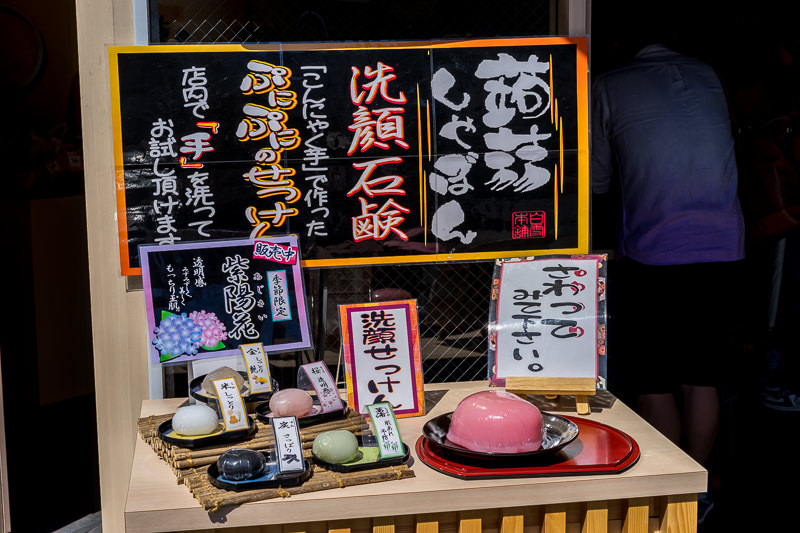 蒟蒻
しゃぼん
白雪
本舗
洗顔石鹸
「こんにゃく芋」で作った
ぷにぷにのせっけん
店内で「手」を洗って
お試し頂けます
販売中
季節限定
紫陽花
あじさい
透明感
もっちり玉肌。
洗顔
せっけん
さわって
みて下さい。
金
米
しっとり
桜
透明感
炭
さっぱり